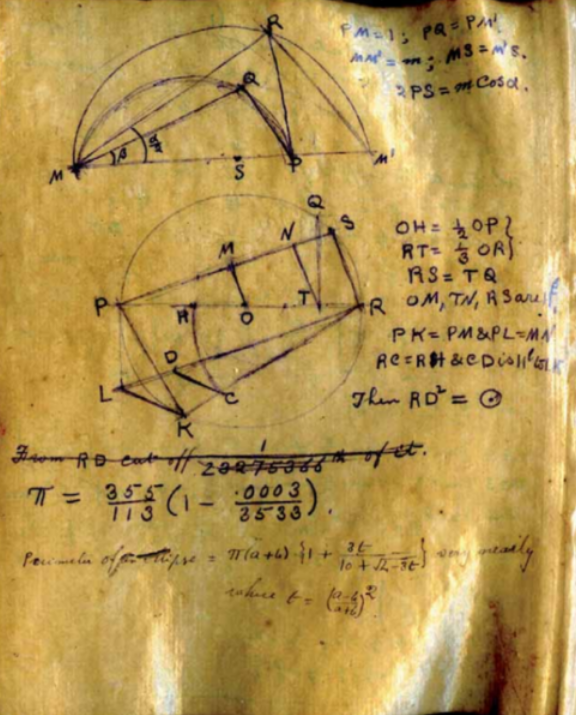 PM=1; PQ=PM'
MM'=m; MS=M'S.
2PS=mCosα.
R
Q
β
α/2
M
S
P
M'
Q
S
N
M
P
H
O
T
R
D
L
C
K
OH = ½ OP}
RT = ⅓ OR}
RS = TQ
OM, TN, RS are ∥
PK = PM & PL = MN
RC = RH & CD is ∥ to LK
Then RD² = ⊙
From RD cut off 1/23275366 th of it.
π = 355/113 (1 − .0003/3533).
Perimeter of an ellipse = π(a+b) {1 + 3t/(10 + √(4−3t))} very nearly
where t = ((a−b)/(a+b))²